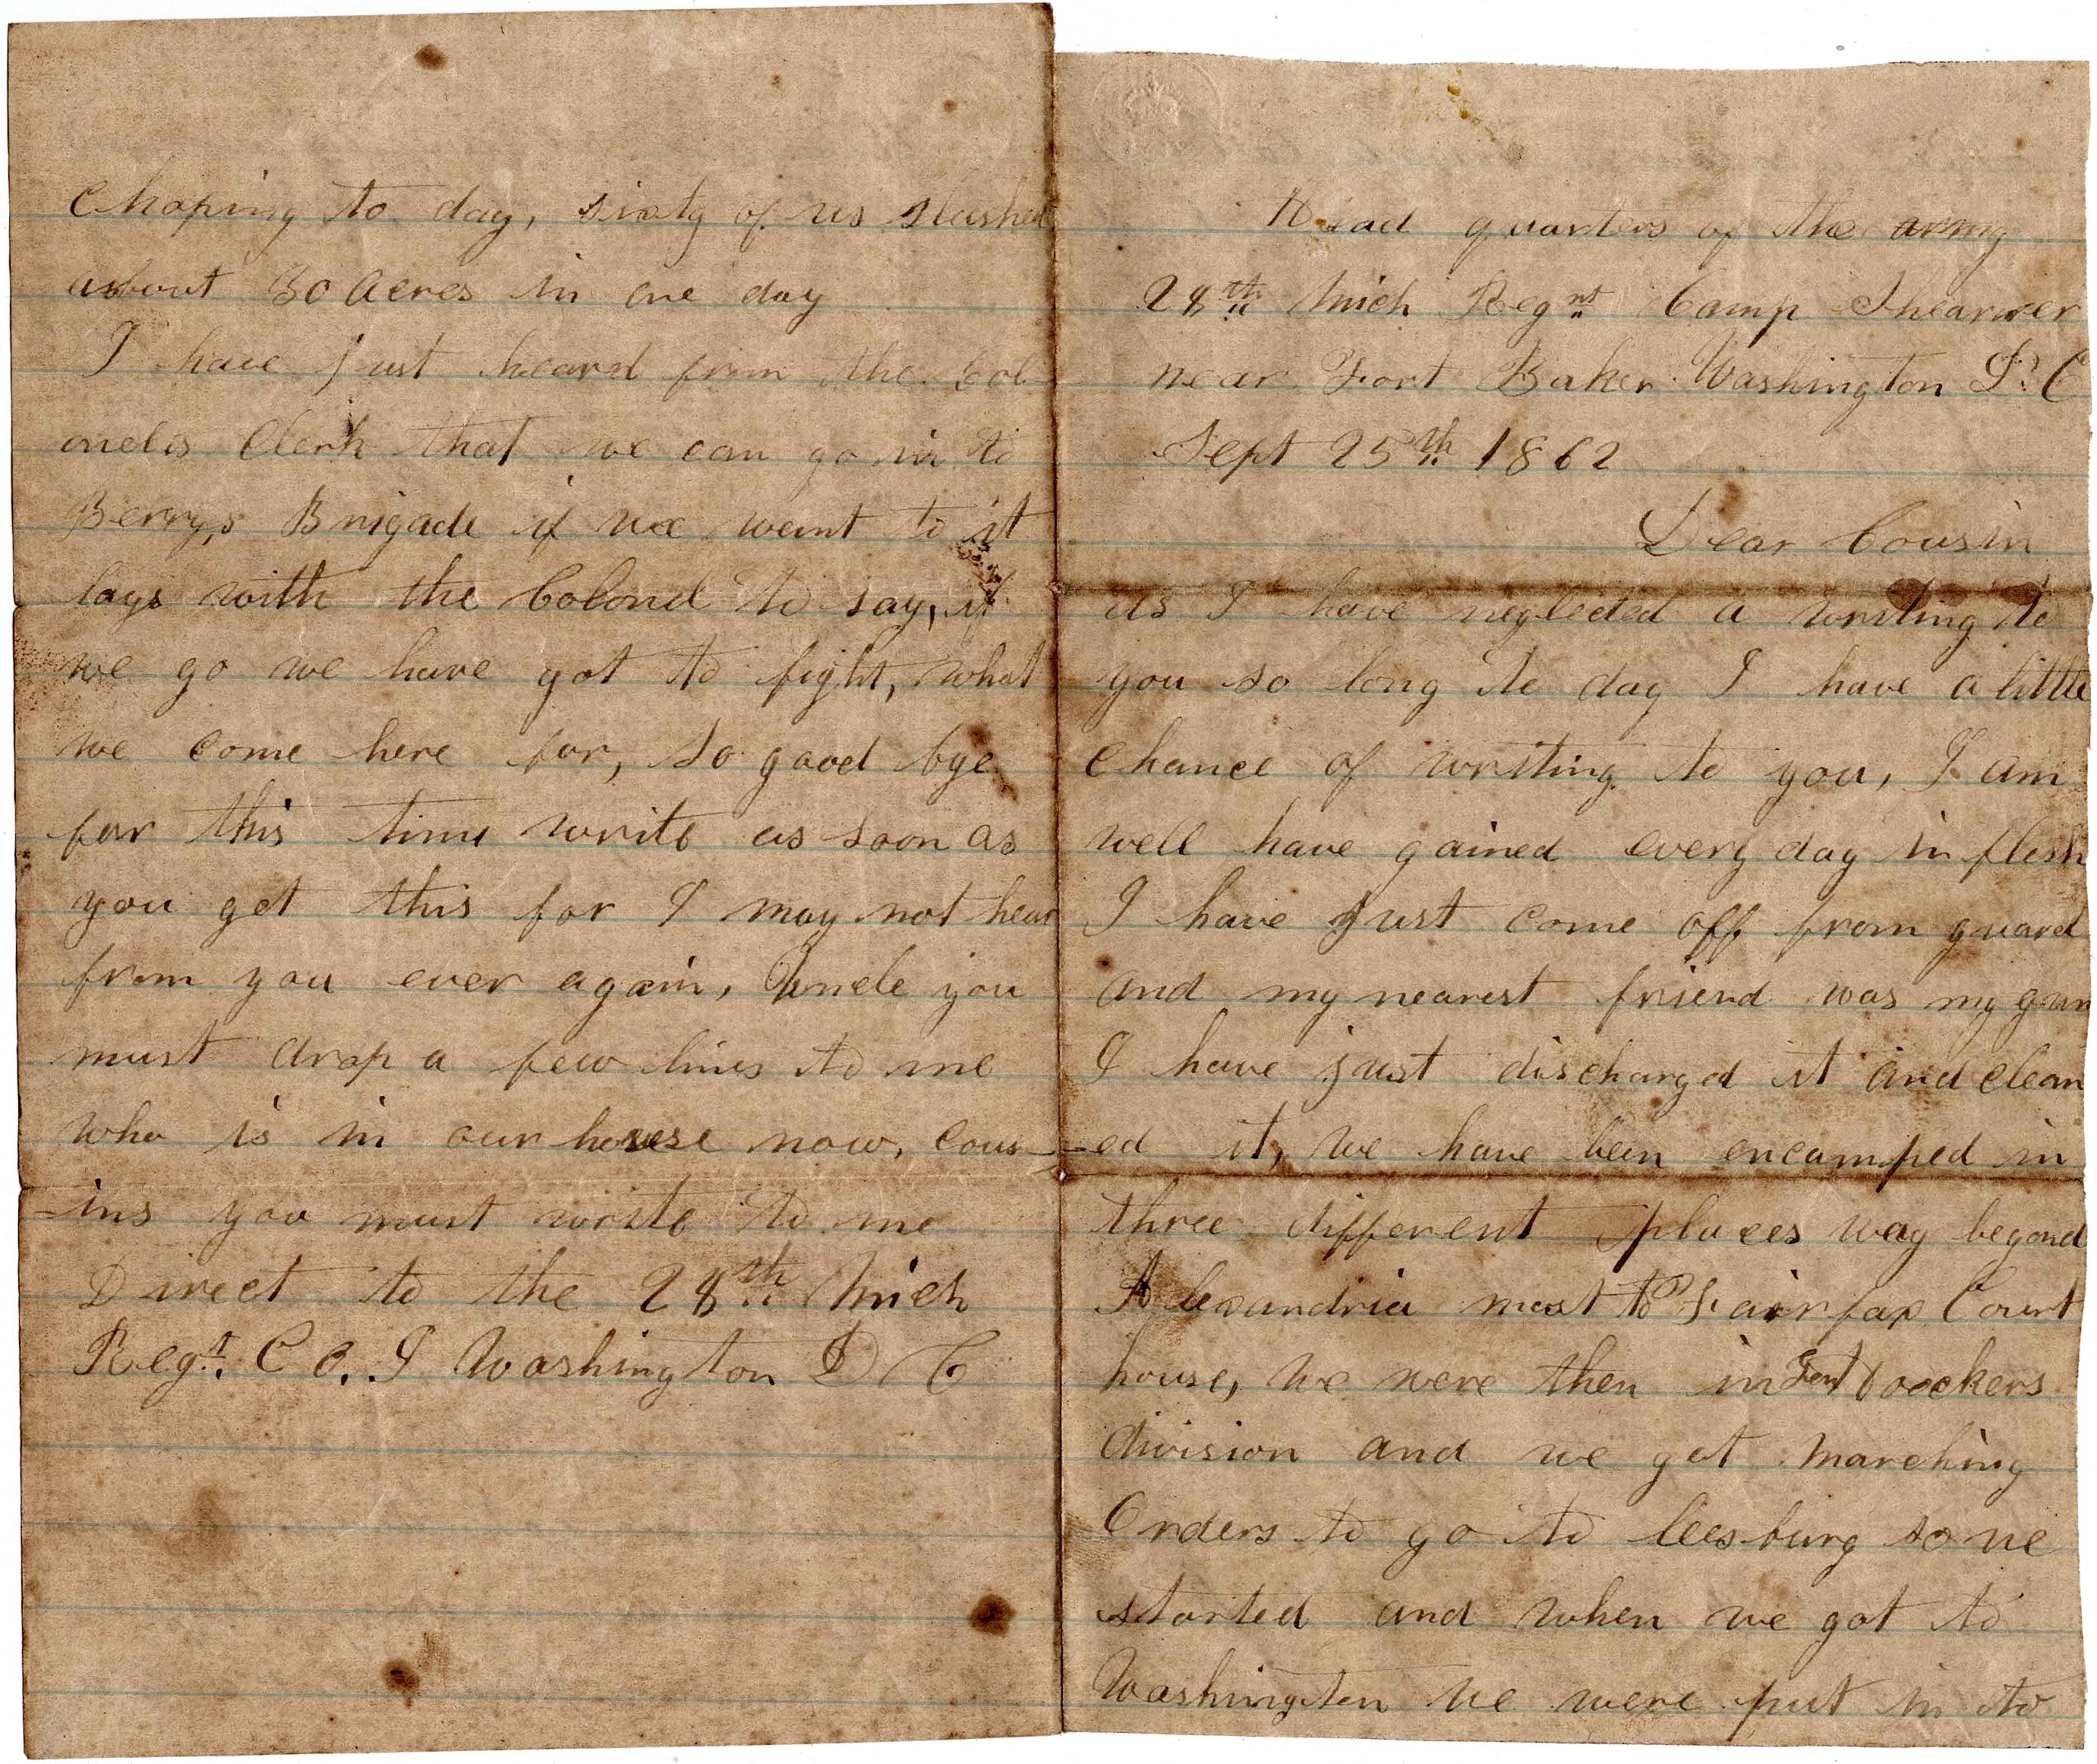 Head quarters of the army
28th Mich Regnt Camp Shearmer
near Fort Baker Washington D. C
Sept 25th 1862
Dear Cousin
as I have neglected a writing to
you so long to day I have a little
chance of writing to you, I am
well have gained every day in flesh
I have just come off from guard
and my nearest friend was my gun
I have just discharged it and clean
-ed it, we have been encamped in
three different places way beyond
Alexandria most to Fairfax Court
house, we were then in
division and we got marching
Orders to go to leesburg so we
started and when we got to
Washington we were put in to
choping to day, sixty of us slashed
about 30 acres in one day
I have just heard from the Col-
onels Clerk that we can go in to
Berry,s Brigade if we want to it
lays with the Colonel to say, if
we go we have got to fight, what
we come here for, so good bye
for this time write as soon as
you get this for I may not hear
from you ever again, Uncle you
must drop a few lines to me
who is in our house now, cous-
-ins you must write to me
Direct to the 28th Mich
Regt. Co. I Washington D C